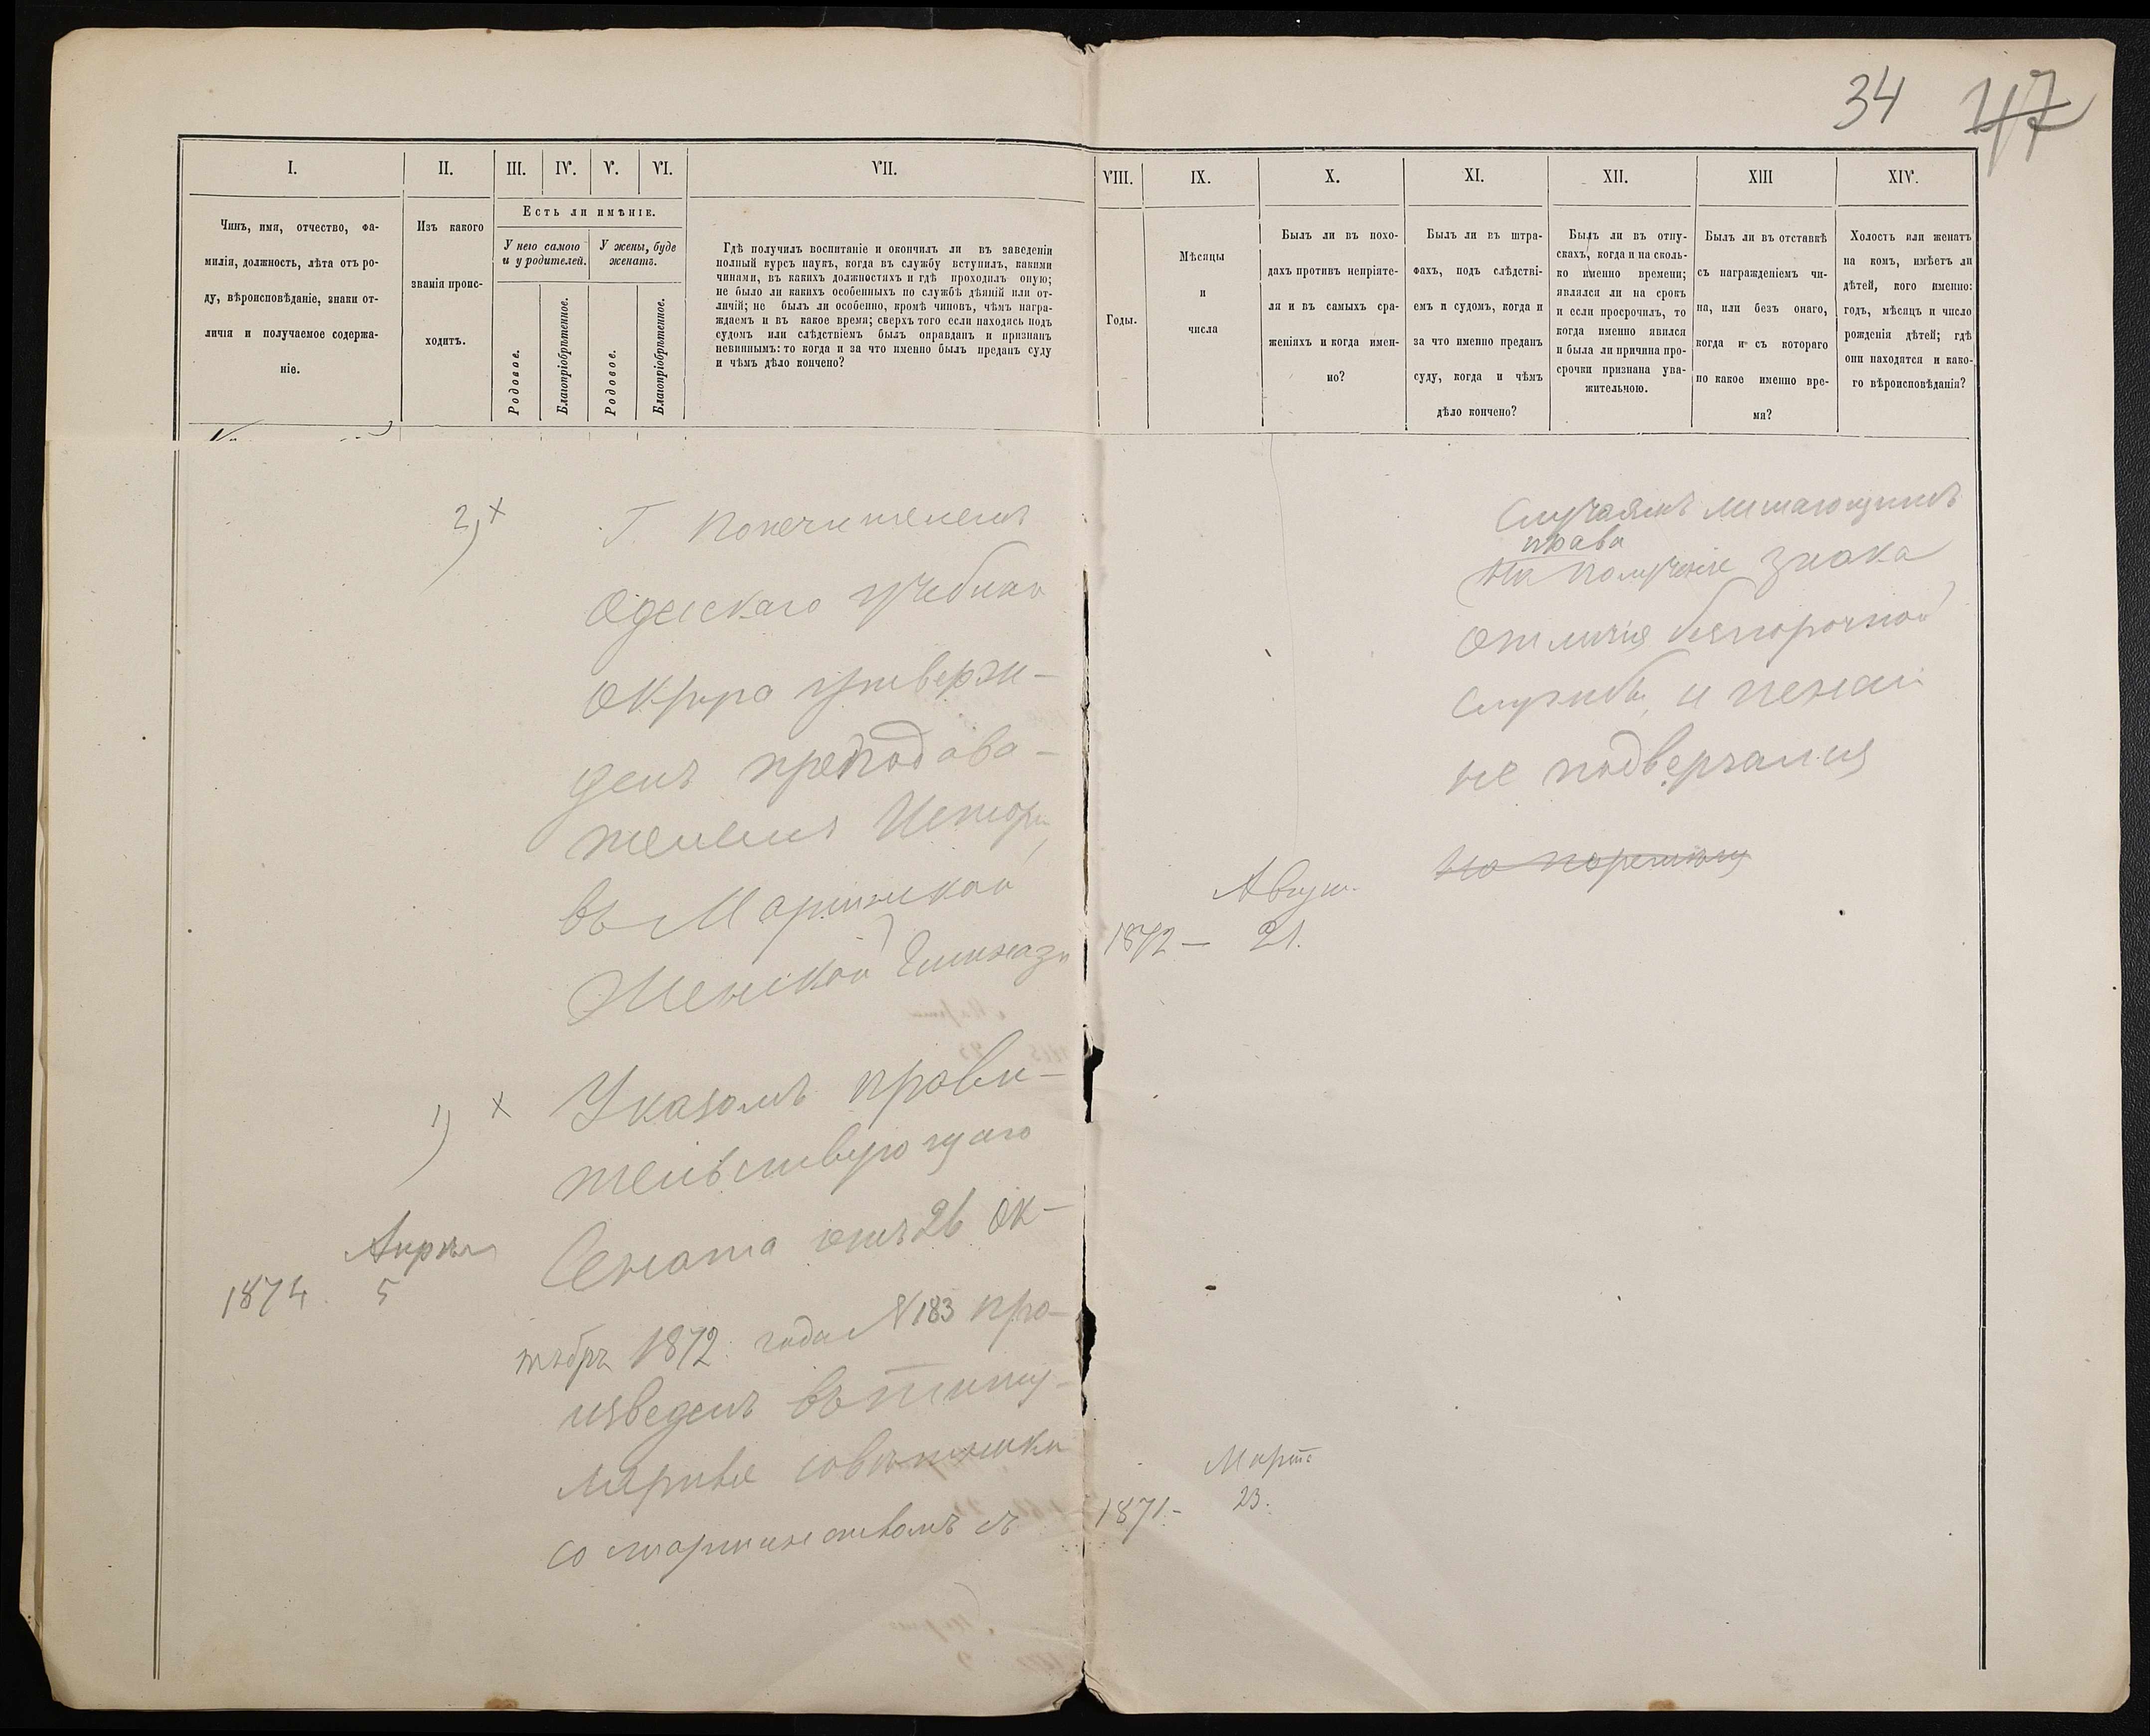 34 47
I. II. III. IV. V. VI. VII. VIII. IX. X. XI. XII. XIII XIV.
Чинъ, имя, отчество, фа-
милія, должность, лѣта отъ ро-
ду, вѣроисповѣданіе, знаки от-
личія и получаемое содержа-
ніе.
Изъ какого
званія проис-
ходитъ.
Есть ли имѣніе.
У него самого
и у родителей.
У жены, буде
женатъ.
Родовое.
Благопріобрѣтенное.
Родовое.
Благопріобрѣтенное.
Гдѣ получилъ воспитаніе и окончилъ ли въ заведеніи
полный курсъ наукъ, когда въ службу вступилъ, какими
чинами, въ какихъ должностяхъ и гдѣ проходилъ оную;
не было ли какихъ особенныхъ по службѣ дѣяній или от-
личій; не былъ ли особенно, кромѣ чиновъ, чѣмъ награ-
ждаемъ и въ какое время; сверхъ того если находясь подъ
судомъ или слѣдствіемъ былъ оправданъ и признанъ
невиннымъ: то когда и за что именно былъ преданъ суду
и чѣмъ дѣло кончено?
Годы.
Мѣсяцы
и
числа
Былъ ли въ похо-
дахъ противъ непріяте-
ля и въ самыхъ сра-
женіяхъ и когда имен-
но?
Былъ ли въ штра-
фахъ, подъ слѣдстві-
емъ и судомъ, когда и
за что именно преданъ
суду, когда и чѣмъ
дѣло кончено?
Былъ ли въ отпу-
скахъ, когда и на сколь-
ко именно времени;
являлся ли на срокъ
и если просрочилъ, то
когда именно явился
и была ли причина про-
срочки признана ува-
жительною.
Былъ ли въ отставкѣ
съ награжденіемъ чи-
на, или безъ онаго,
когда и съ котораго
по какое именно вре-
мя?
Холостъ или женатъ
на комъ, имѣетъ ли
дѣтей, кого именно:
годъ, мѣсяцъ и число
рожденія дѣтей; гдѣ
они находятся и како-
го вѣроисповѣданія?
2) х Г. Попечителемъ
Одесскаго учебнаго
округа утверж-
денъ преподава-
телемъ Исторіи
въ Маріинской
Женской Гимназіи
Август.
1872 — 21.
1) х Указомъ прави-
тельствующаго
Сената отъ 26 ок-
тябр. 1872 года N 183 про-
изведенъ въ титу-
лярные совѣтники
со старшинствомъ съ
Апрѣля
1874. 5
Марта
1871 - 23.
Случаямъ лишающимъ
права
на полученіе знака
отличія безпорочной
службы, и пенсіи
не подвергался